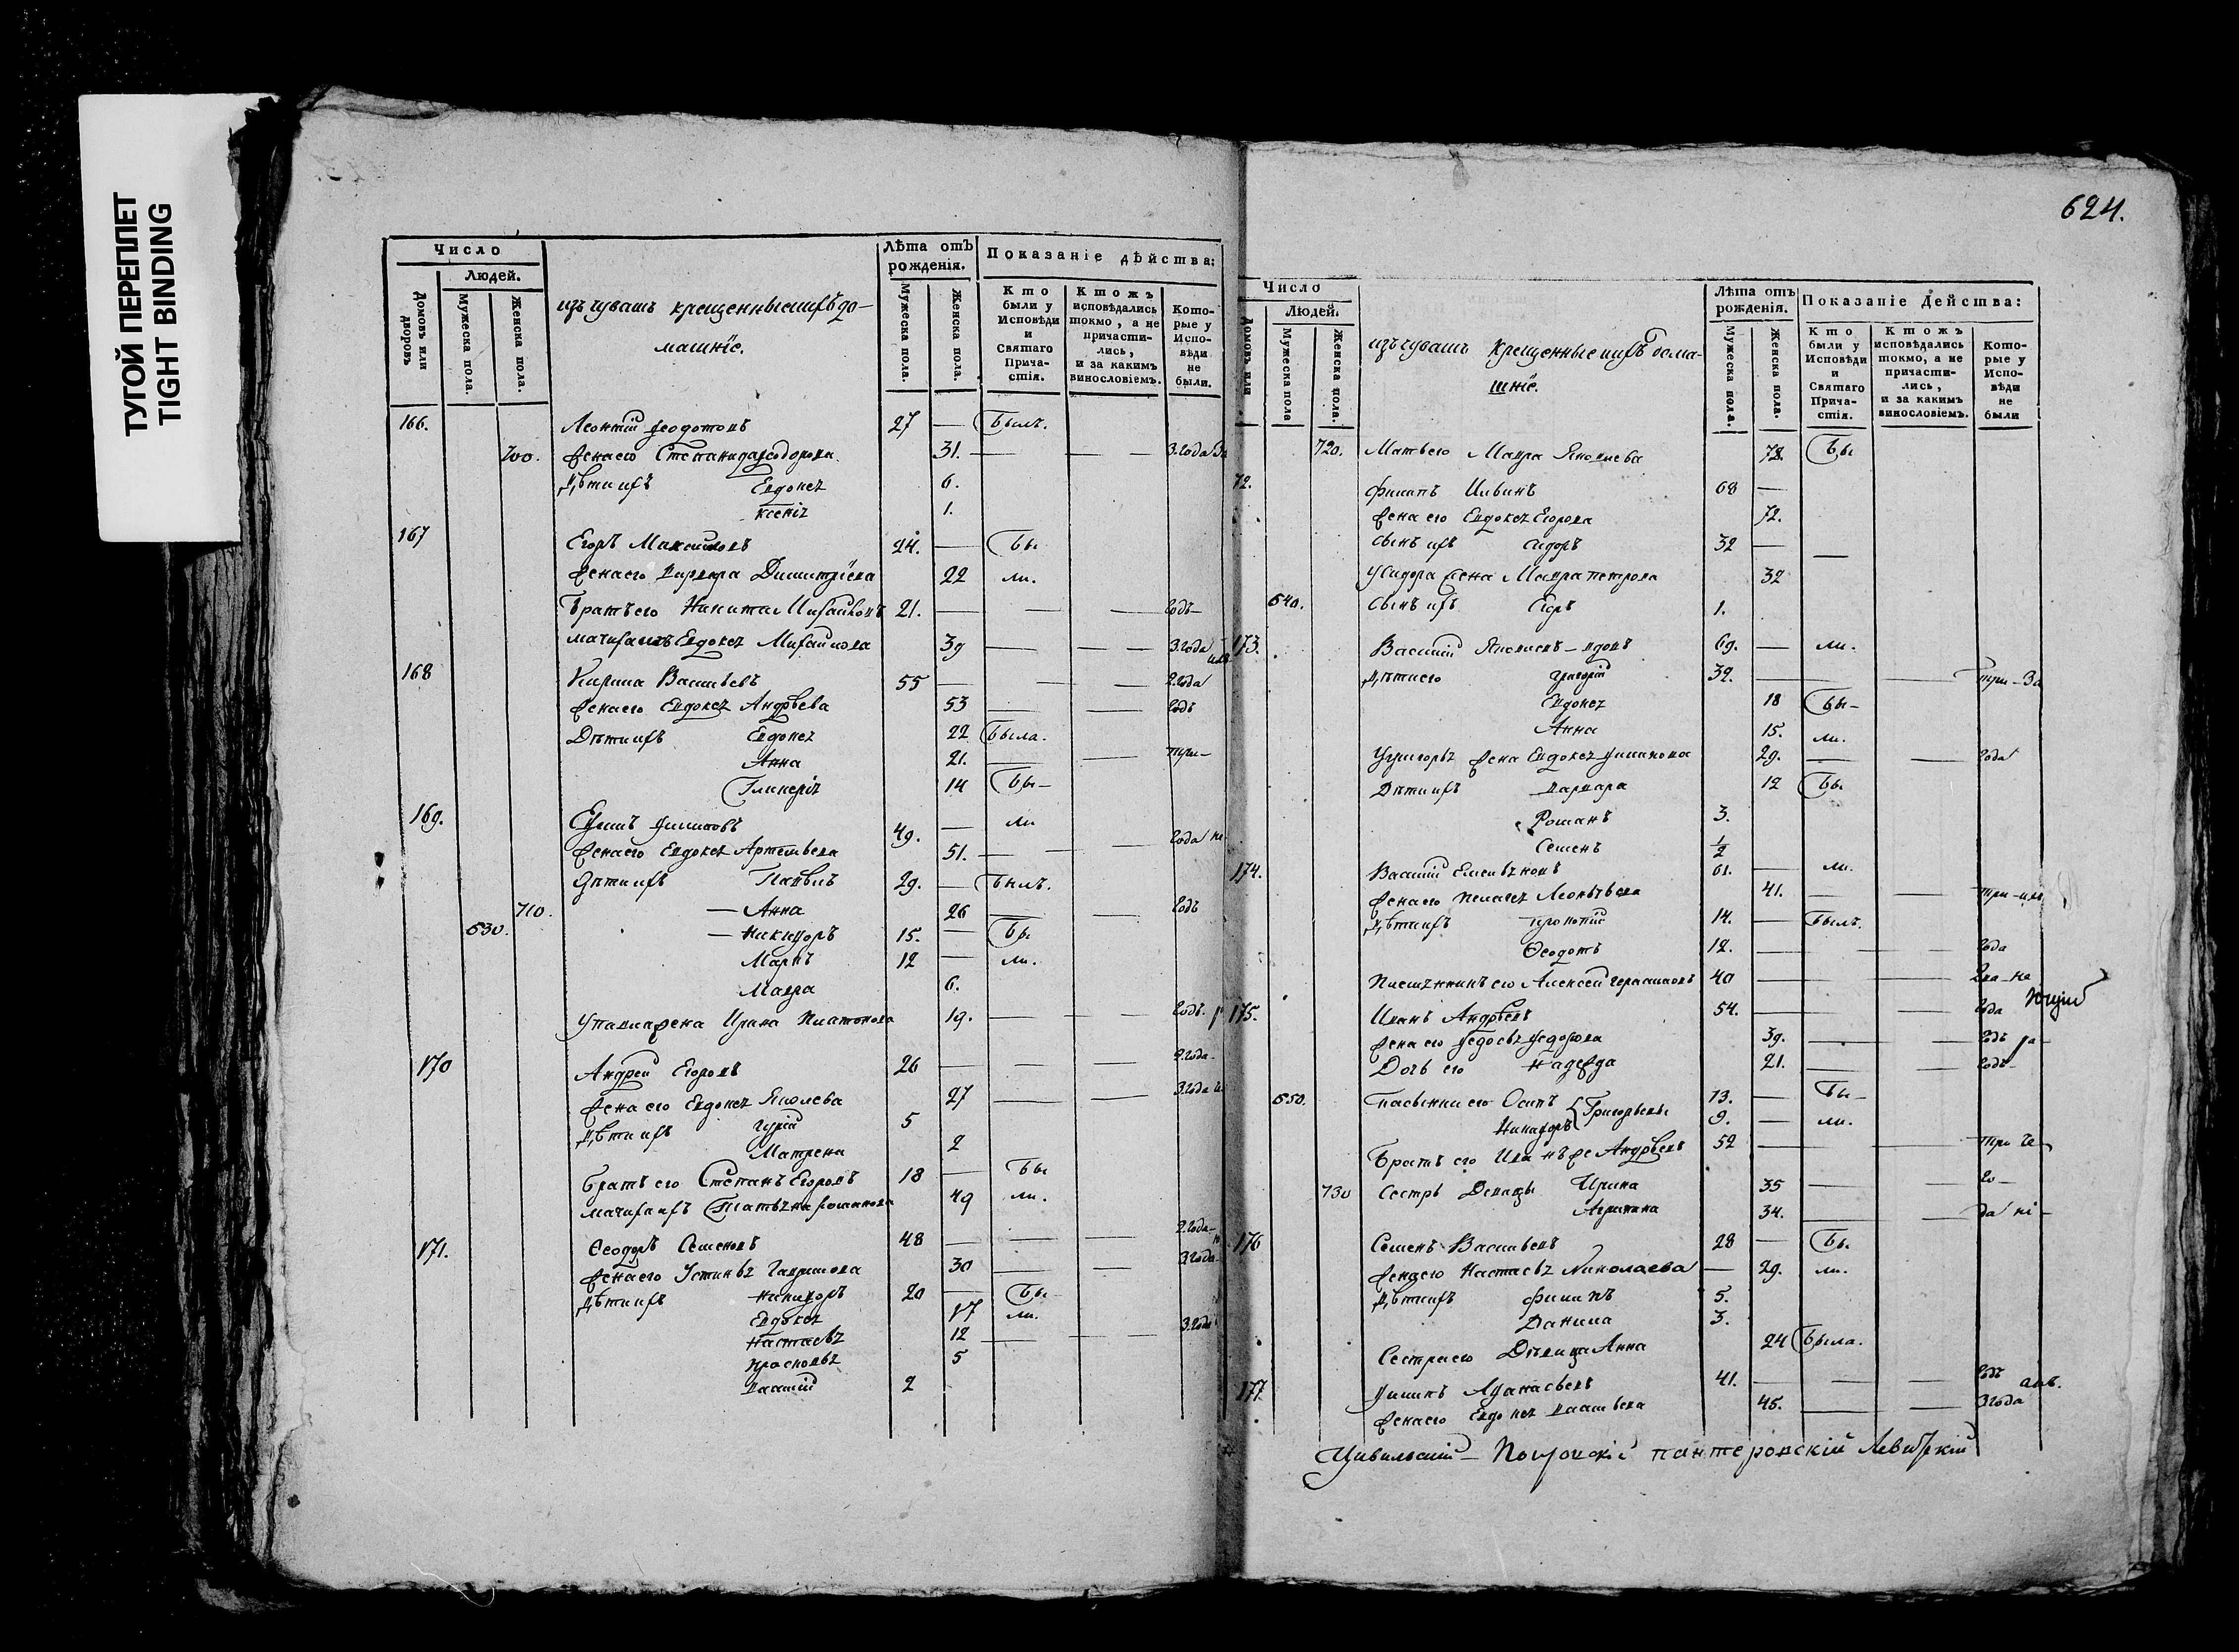 ТУГОЙ ПЕРЕПЛЕТ
TIGHT BINDING
Число
Людей.
Домовъ или дворовъ
Мужеска пола.
Женска пола.
изъ чувашъ крещенные ихъ до-
машніе.
Лѣта отъ рожденія.
Мужеска пола.
Женска пола.
Показаніе дѣйства:
Кто были у Исповѣди и Святаго Прича-стія.
Ктожъ исповѣдались токмо, а не причасти-лись, и за какимъ винословіемъ.
Кото-рые у Испо-вѣди не были.
166. Леонтій Ѳеодотовъ 27 — Былъ.
700. Жена его Степанида 31. — — 3. года
Дѣти ихъ Евдокея 6.
Ксенія 1.
167 Егоръ Максимовъ 24. — Бы
Жена его Варвара Димитріева 22 ли.
Братъ его Никита Михайловъ 21. — — — годъ
Евдокея Михайлова 39 — — — 3. года
168 Кирила Васильевъ 55 — — — 2. года
Жена его Евдокея Андрѣева 53 — — годъ
Дѣти ихъ Евдокея 22 Была.
Анна 21. — — три —
Гликерія 14 Бы —
169. Филиповъ 49. — ли
Жена его Евдокея Артемьева 51. — — — года
Дѣти ихъ Павелъ 29. — Былъ.
710. — Анна 26 — — годъ
530. — Никифоръ 15. — Бы
Маркъ 12 — ли.
Мавра 6.
У Павла жена Ирина Платонова 19. — — — годъ.
170 Андрей Егоровъ 26 — — — 2. года
Жена его Евдокея Яковлева 27 — — 3. года
Дѣти ихъ Гурій 5
Матрена 2
Братъ его Степанъ Егоровъ 18 — Бы
Мачиха ихъ Татьяна Романова 49 ли.
171. Ѳеодоръ Семеновъ 48 — — — 2. года
Жена его Устинья Гаврилова 30 — — 3. года
Дѣти ихъ Никифоръ 20 — Бы
Евдокея 17 ли.
Настасья 12 — — — 3. года
Прасковья 5
Василій 2
624.
Число
Людей.
Домовъ или
Мужеска пола
Женска пола.
изъ чувашъ крещенные ихъ дома-
шніе.
Лѣта отъ рожденія.
Мужеска пола.
Женска пола.
Показаніе Действа:
Кто были у Исповѣди и Святаго Прича-стія.
Ктожъ исповѣдались токмо, а не причасти-лись, и за какимъ винословіемъ.
Кото-рые у Испо-вѣди не были
720. Мать его Мавра Яковлева 78. Бы
72. Филипъ Ильинъ 68 —
Жена его Евдокея Егорова 72.
Сынъ ихъ Сидоръ 32 — —
У Сидора жена Мавра Петрова 32
540. Сынъ ихъ Егоръ 1.
173. Василій Яковлевъ — вдовъ 69. — ли.
Дѣти его Григорій 32. — — — три
Евдокея 18 Бы —
Анна 15. ли.
У Григорья жена Евдокея Филипова 29. — — года
Дѣти ихъ Варвара 12 Бы
Романъ 3.
Семенъ 1/2
174. Василій Емельяновъ 61. — ли.
Жена его Пелагея Леонтьева 41. — — три
Дѣти ихъ Прокопій 14. — Былъ.
Ѳеодотъ 12. — — — года
Племянникъ его Алексей Герасимовъ 40 — — — два
175. Иванъ Андрѣевъ 54. — — — года
Жена его Федосья Федорова 39. — — годъ
Дочь его Надежда 21. — — годъ
550. Пасынки его Осипъ 13. — Бы —
Никифоръ } Григорьевы 9. — ли.
Братъ его Иванъ же Андрѣевъ 52 — — — три
730 Сестры Девицы Ирина 35 — — го —
Агрипина 34. — — да
176 Семенъ Васильевъ 28 — Бы.
Жена его Настасья Николаева — 29. ли.
Дѣти ихъ Филипъ 5.
Данила 3.
Сестра его Дѣвица Анна 24 Была.
177 Филипъ Афанасьевъ 41. — — — годъ
Жена его Евдокея Васильева 45. — — 3 года
Цивильскій —